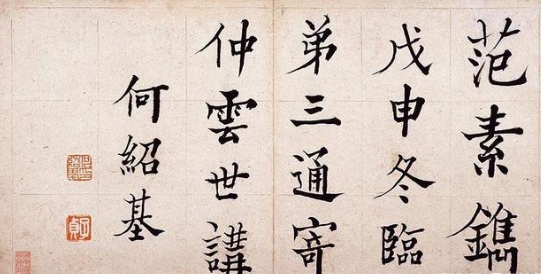 范素鐫
戊申冬臨
弟三通寄
仲雲世講
何紹基